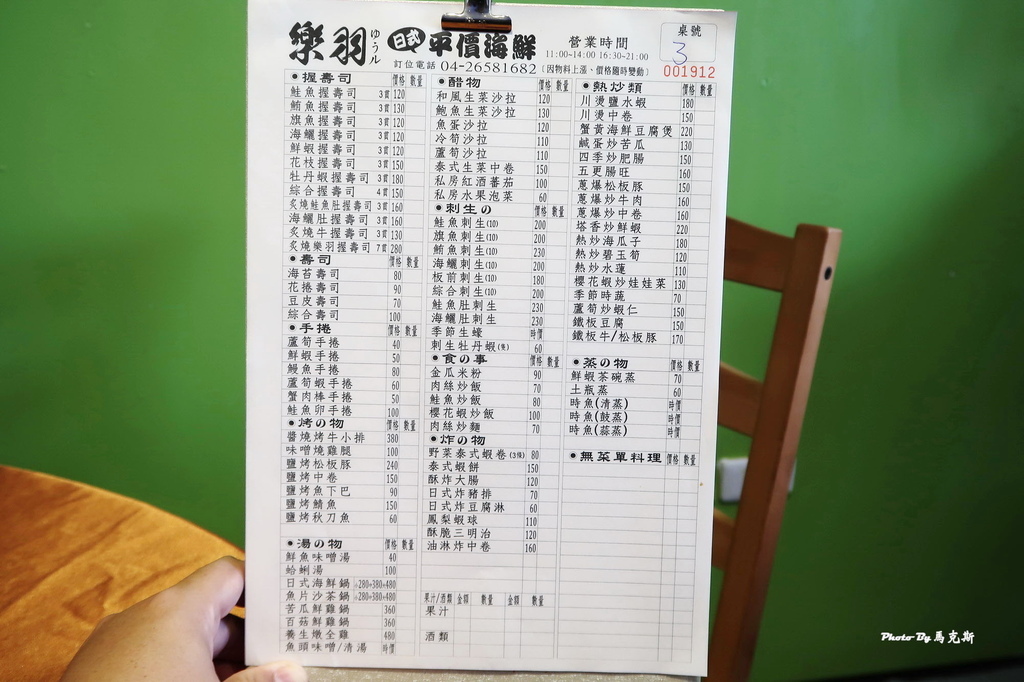 樂羽 ゆうル 日式 平價海鮮
營業時間
11:00~14:00 16:30~21:00
訂位電話 04-26581682 (因物料上漲、價格隨時變動)
桌號
3
001912
●握壽司 價格 數量
鮭魚握壽司 3貫 120
鮪魚握壽司 3貫 130
旗魚握壽司 3貫 120
海鱺握壽司 3貫 120
鮮蝦握壽司 3貫 120
花枝握壽司 3貫 150
牡丹蝦握壽司 3貫 180
綜合握壽司 4貫 150
炙燒鮭魚肚握壽司 3貫 160
海鱺肚握壽司 3貫 160
炙燒牛握壽司 3貫 130
炙燒樂羽握壽司 7貫 280
●壽司 價格 數量
海苔壽司 80
花捲壽司 90
豆皮壽司 70
綜合壽司 100
●手捲 價格 數量
蘆筍手捲 40
鮮蝦手捲 50
鰻魚手捲 80
蘆筍蝦手捲 60
蟹肉棒手捲 50
鮭魚卵手捲 100
●烤の物 價格 數量
醬燒烤牛小排 380
味噌燒雞腿 100
鹽烤松板豚 240
鹽烤中卷 150
鹽烤魚下巴 90
鹽烤鯖魚 150
鹽烤秋刀魚 60
●湯の物 價格 數量
鮮魚味噌湯 40
蛤蜊湯 100
日式海鮮鍋 280+380+480
魚片沙茶鍋 280+380+480
苦瓜鮮雞鍋 360
百菇鮮雞鍋 360
養生燉全雞 480
魚頭味噌/清湯 時價
●醋物 價格 數量
和風生菜沙拉 120
鮑魚生菜沙拉 130
魚蛋沙拉 120
冷筍沙拉 110
蘆筍沙拉 110
泰式生菜中卷 150
私房紅酒蕃茄 100
私房水果泡菜 60
●刺生の 價格 數量
鮭魚刺生(10) 200
旗魚刺生(10) 200
鮪魚刺生(10) 230
海鱺刺生(10) 200
板前刺生(10) 180
綜合刺生(10) 200
鮭魚肚刺生 230
海鱺肚刺生 230
季節生蠔 時價
刺生牡丹蝦(隻) 60
●食の事 價格 數量
金瓜米粉 90
肉絲炒飯 70
鮭魚炒飯 80
櫻花蝦炒飯 100
肉絲炒麵 70
●炸の物 價格 數量
野菜泰式蝦卷(3條) 80
泰式蝦餅 150
酥炸大腸 120
日式炸豬排 70
日式炸豆腐淋 60
鳳梨蝦球 110
酥脆三明治 120
油淋炸中卷 160
果汁/酒類 金額 數量 金額 數量
果汁
酒類
●熱炒類 價格 數量
川燙鹽水蝦 180
川燙中卷 150
蟹黃海鮮豆腐煲 220
鹹蛋炒苦瓜 130
四季炒肥腸 160
五更腸旺 160
蔥爆松板豚 150
蔥爆炒牛肉 160
蔥爆炒中卷 160
塔香炒鮮蝦 220
熱炒海瓜子 180
熱炒碧玉筍 120
熱炒水蓮 110
櫻花蝦炒娃娃菜 130
季節時蔬 70
蘆筍炒蝦仁 150
鐵板豆腐 150
鐵板牛/松板豚 170
●蒸の物 價格 數量
鮮蝦茶碗蒸 70
土瓶蒸 60
時魚(清蒸) 時價
時魚(豉蒸) 時價
時魚(蒜蒸) 時價
●無菜單料理 價格 數量
Photo By 馬克斯